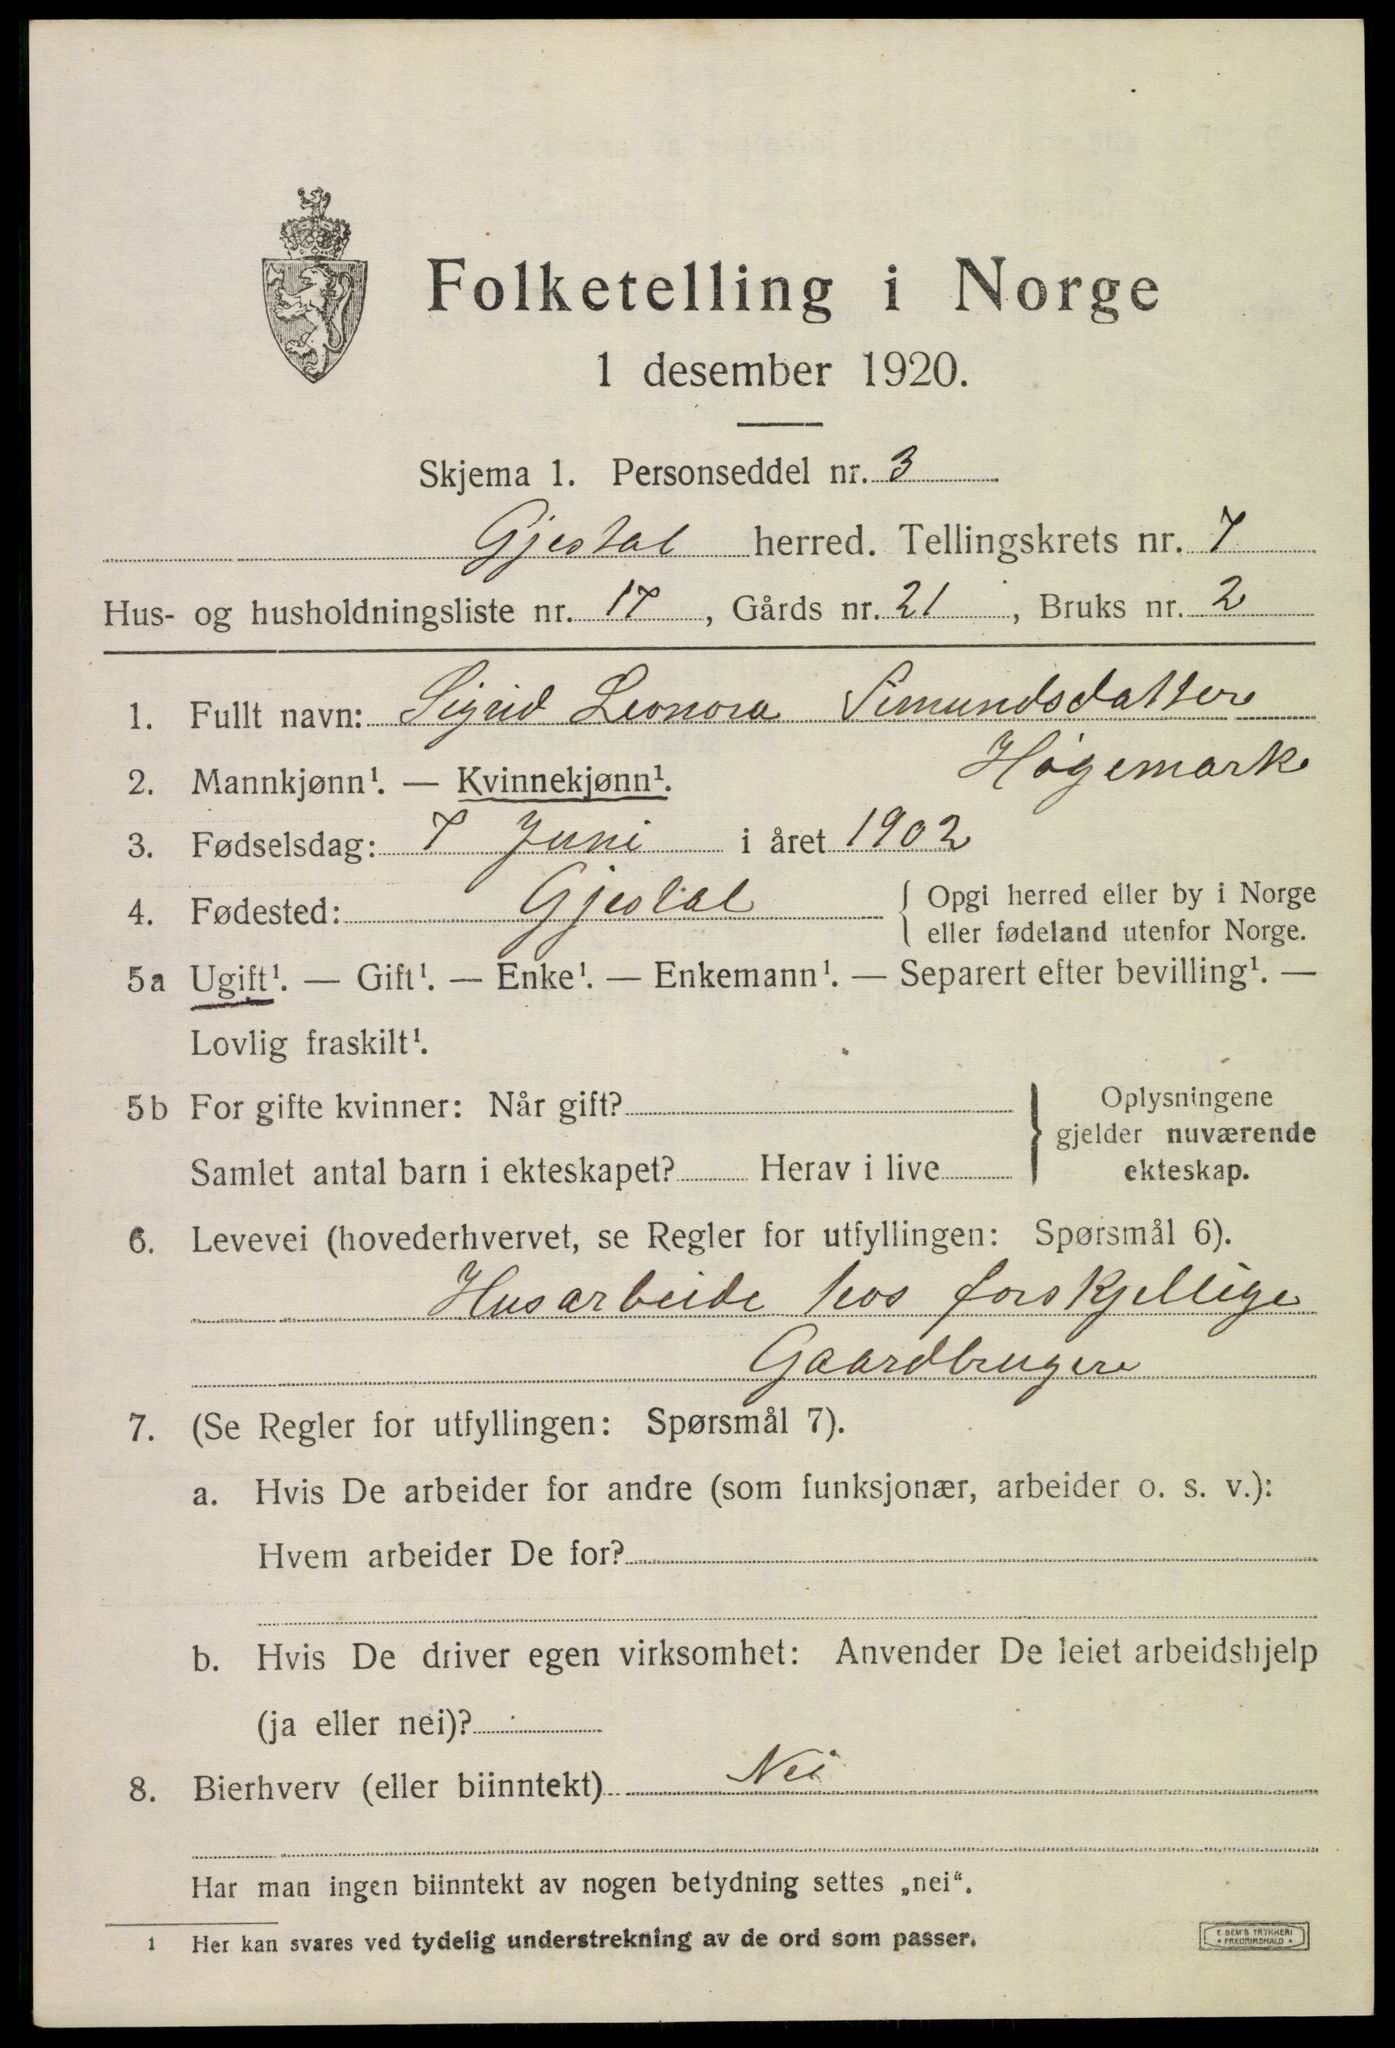 Folketelling i Norge
1 desember 1920.
Skjema 1. Personseddel nr. 3
Gjestal herred. Tellingskrets nr. 7
Hus- og husholdningsliste nr. 17, Gårds nr. 21, Bruks nr. 2
1. Fullt navn: Sigrid Leonora Simundsdatter
Høgemark
2. Mannkjønn¹. — Kvinnekjønn¹.
3. Fødselsdag: 7 Juni i året 1902
4. Fødested: Gjestal { Opgi herred eller by i Norge
eller fødeland utenfor Norge.
5a Ugift¹. — Gift¹. — Enke¹. — Enkemann¹. — Separert efter bevilling¹. —
Lovlig fraskilt¹.
5b For gifte kvinner: Når gift?
Samlet antal barn i ekteskapet? Herav i live
} Oplysningene
gjelder nuværende
ekteskap.
6. Levevei (hovederhvervet, se Regler for utfyllingen: Spørsmål 6).
Husarbeide hos forskjellige
Gaardbrugere
7. (Se Regler for utfyllingen: Spørsmål 7).
a. Hvis De arbeider for andre (som funksjonær, arbeider o. s. v.):
Hvem arbeider De for?
b. Hvis De driver egen virksomhet: Anvender De leiet arbeidshjelp
(ja eller nei)?
8. Bierhverv (eller biinntekt) Nei
Har man ingen biinntekt av nogen betydning settes „nei“.
¹ Her kan svares ved tydelig understrekning av de ord som passer.
E SEM'S TRYKKERI
• FREDRIKSHALD •